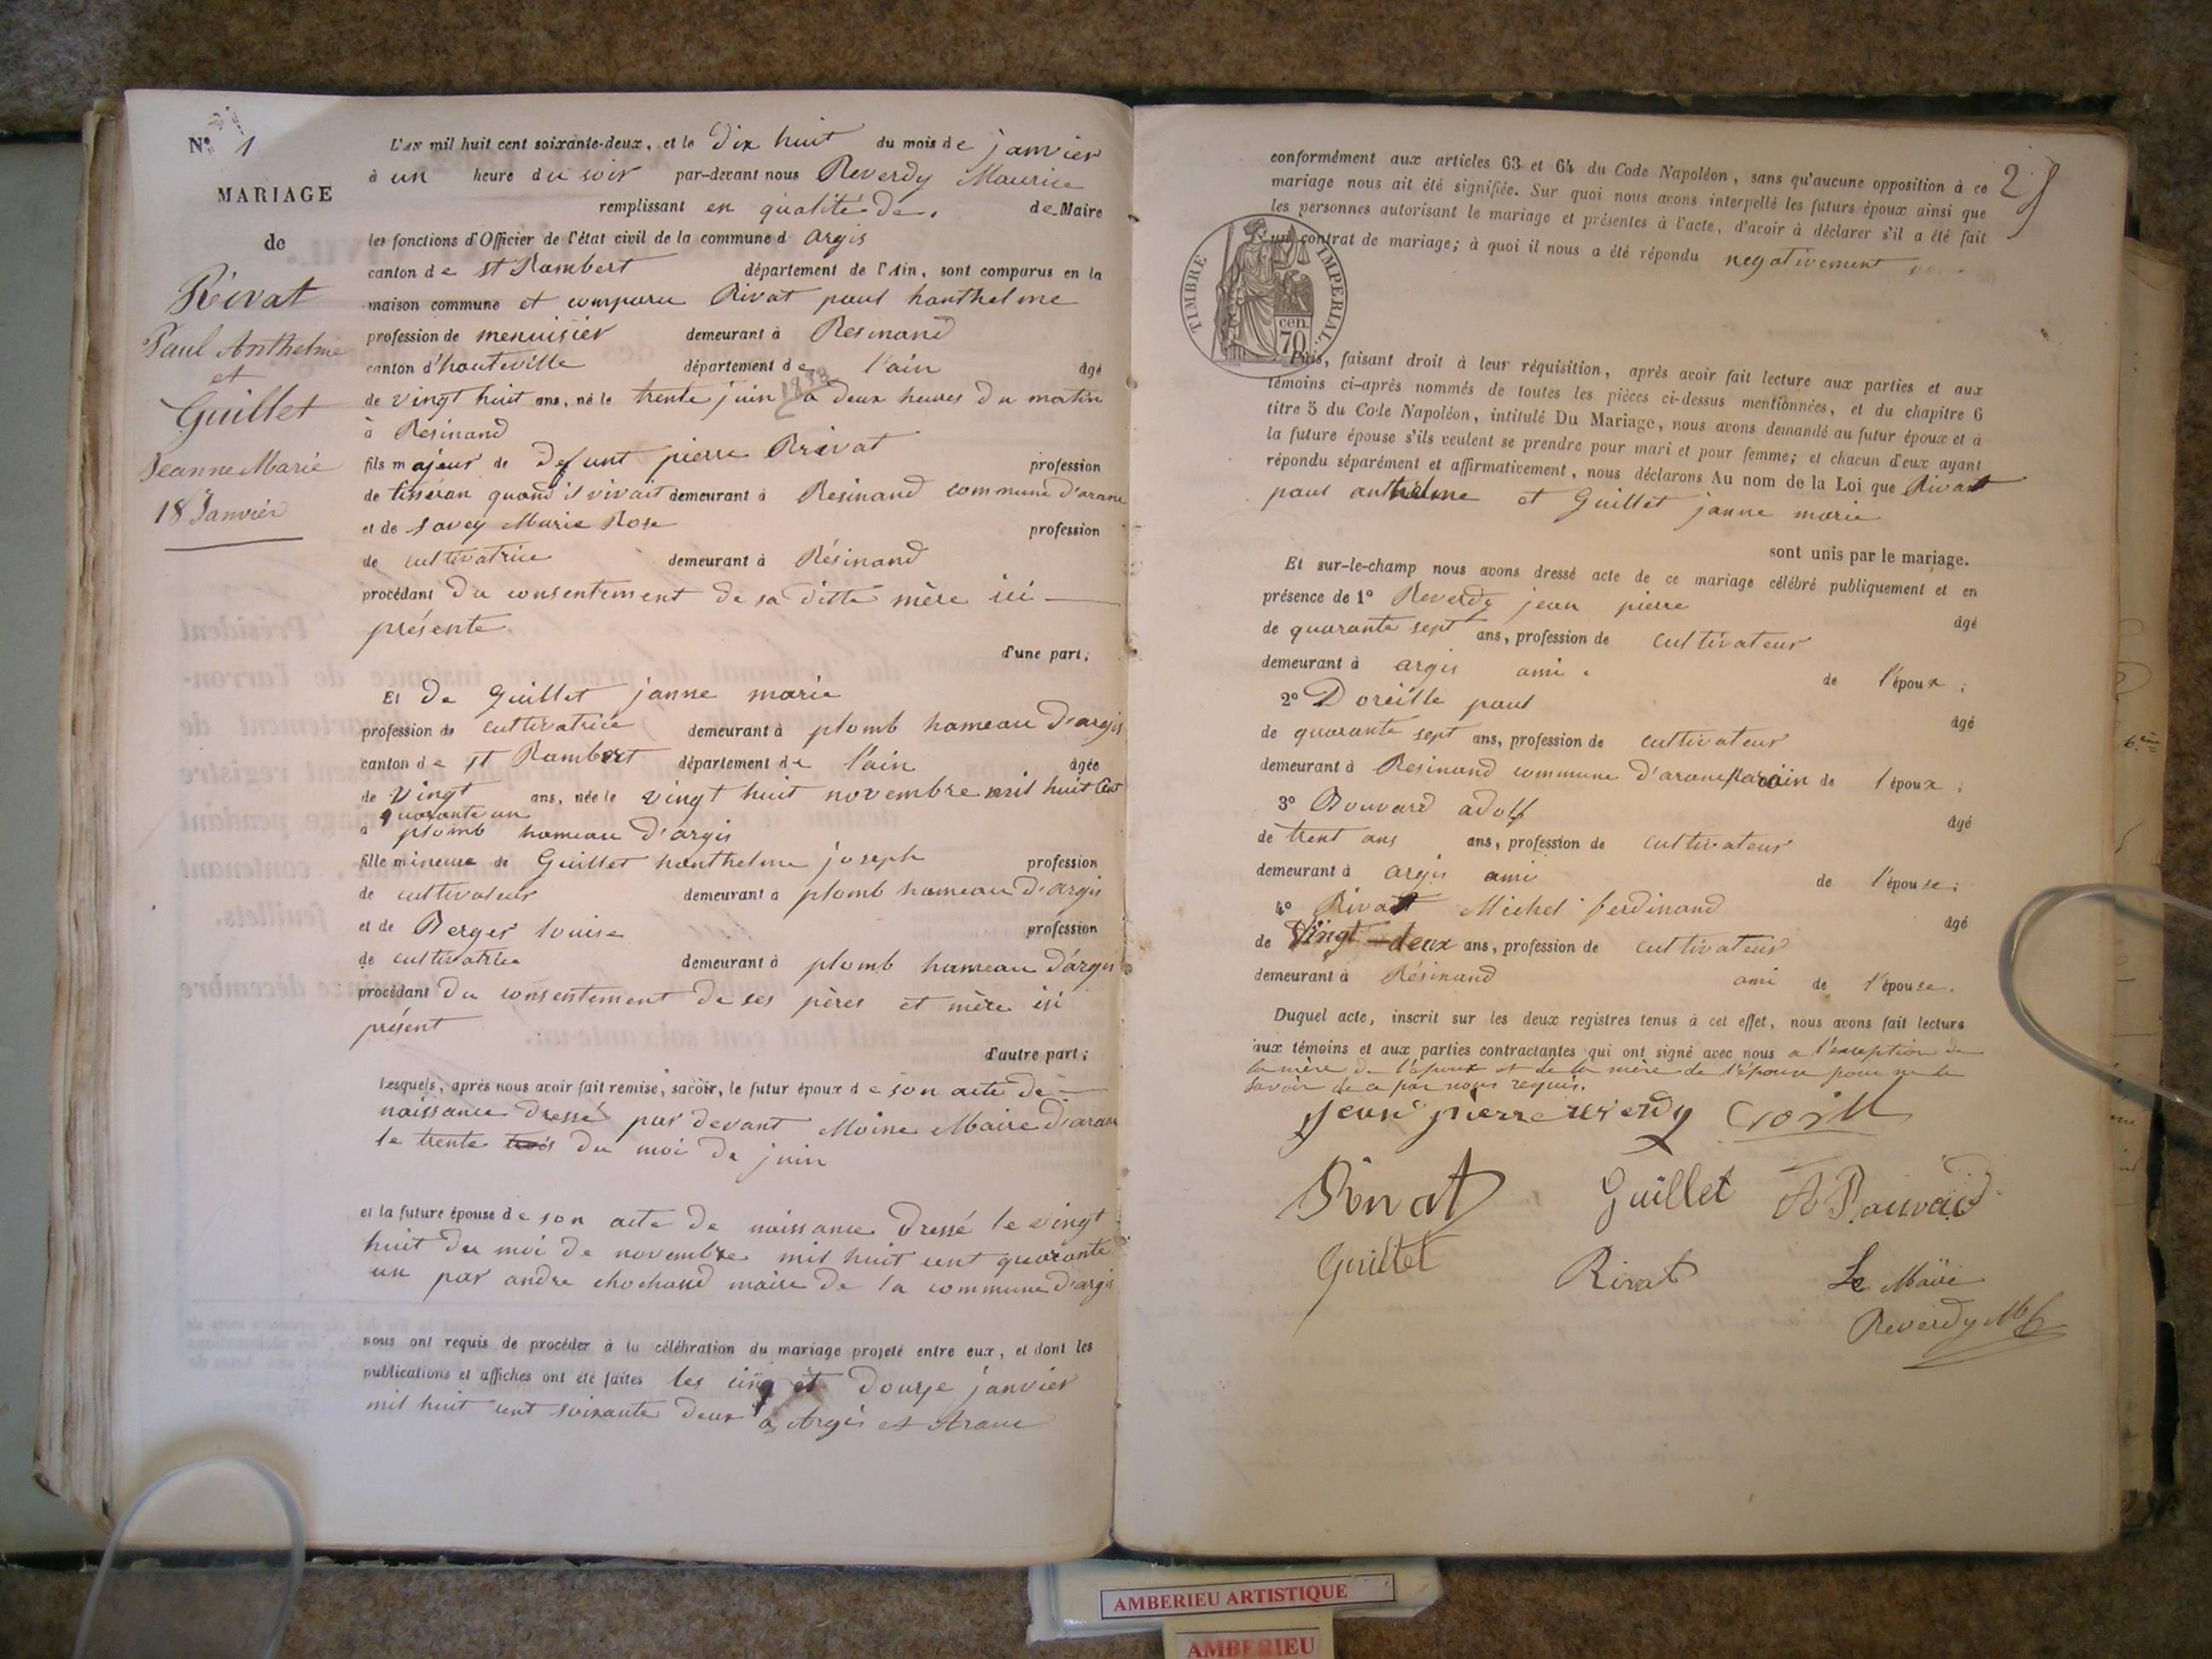 N° 1
MARIAGE
de
Rivat
Paul Anthelme
et
Guillet
Jeanne Marie
18 Janvier
L'AN mil huit cent soixante-deux, et le Dix huit du mois de janvier
à un heure du soir par-devant nous Reverdy Maurice
remplissant en qualité de. de Maire
les fonctions d'Officier de l'état civil de la commune d argis
canton de st Rambert département de l'Ain, sont comparus en la
maison commune et comparu Rivat paul hanthelme
profession de menuisier demeurant à Resinand
canton d'hauteville département de l'ain âgé
de vingt huit ans, né le trente juin 1833 à deux heures du matin
à Résinand
fils majeur de defunt pierre Rivat profession
de tisseran quand il vivait demeurant à Resinand commune d'arane
et de savey Marie Rose profession
de cultivatrice demeurant à Résinand
procédant du consentement de sa ditte mère ici
présente
d'une part;
Et de Guillet janne marie
profession de cultivatrice demeurant à plomb hameau d'argis
canton de st Rambert département de l'ain âgée
de vingt ans, née le vingt huit novembre mil huit cent
quarante un
à plomb hameau d'argis
fille mineure de Guillet hanthelme joseph profession
de cultivateur demeurant à plomb hameau d'argis
et de Berger louise profession
de cultivatrice demeurant à plomb hameau d'argis
procédant du consentement de ses pères et mère ici
présent
d'autre part;
Lesquels, après nous avoir fait remise, savoir, le futur époux de son acte de
naissance dressé par devant Moine Maire d'arane
le trente trois du moi de juin
et la future épouse de son acte de naissance dressé le vingt
huit du moi de novembre mil huit cent quarante
un par andre chochand maire de la commune d'argis
nous ont requis de procéder à la célébration du mariage projeté entre eux, et dont les
publications et affiches ont été faites les cinq et douze janvier
mil huit cent soixante deux à Argis et Arane
25
conformément aux articles 63 et 64 du Code Napoléon, sans qu'aucune opposition à ce
mariage nous ait été signifiée. Sur quoi nous avons interpellé les futurs époux ainsi que
les personnes autorisant le mariage et présentes à l'acte, d'avoir à déclarer s'il a été fait
un contrat de mariage; à quoi il nous a été répondu negativement
TIMBRE IMPERIAL
70 cen.
Puis, faisant droit à leur réquisition, après avoir fait lecture aux parties et aux
témoins ci-après nommés de toutes les pièces ci-dessus mentionnées, et du chapitre 6
titre 5 du Code Napoléon, intitulé Du Mariage, nous avons demandé au futur époux et à
la future épouse s'ils veulent se prendre pour mari et pour femme; et chacun d'eux ayant
répondu séparément et affirmativement, nous déclarons Au nom de la Loi que Rivat
paul anthelme et Guillet janne marie
sont unis par le mariage.
Et sur-le-champ nous avons dressé acte de ce mariage célébré publiquement et en
présence de 1° Reverdy jean pierre âgé
de quarante sept ans, profession de cultivateur
demeurant à argis ami de l'époux;
2° Doreille paul âgé
de quarante sept ans, profession de cultivateur
demeurant à Resinand commune d'arane parrain de l'époux;
3° Bouvard adolf âgé
de trent ans ans, profession de cultivateur
demeurant à argis ami de l'épouse;
4° Rivat Michel ferdinand âgé
de Vingt-deux ans, profession de cultivateur
demeurant à Résinand ami de l'épouse.
Duquel acte, inscrit sur les deux registres tenus à cet effet, nous avons fait lecture
aux témoins et aux parties contractantes qui ont signé avec nous a l'exception de
la mère de l'époux et de la mère de l'épouse pour ne le
savoir de ce par nous requis.
jean pierre reverdy
Rivat Guillet A Bouvard
Guillet Rivat Le Maire
Reverdy
AMBERIEU ARTISTIQUE
AMBERIEU